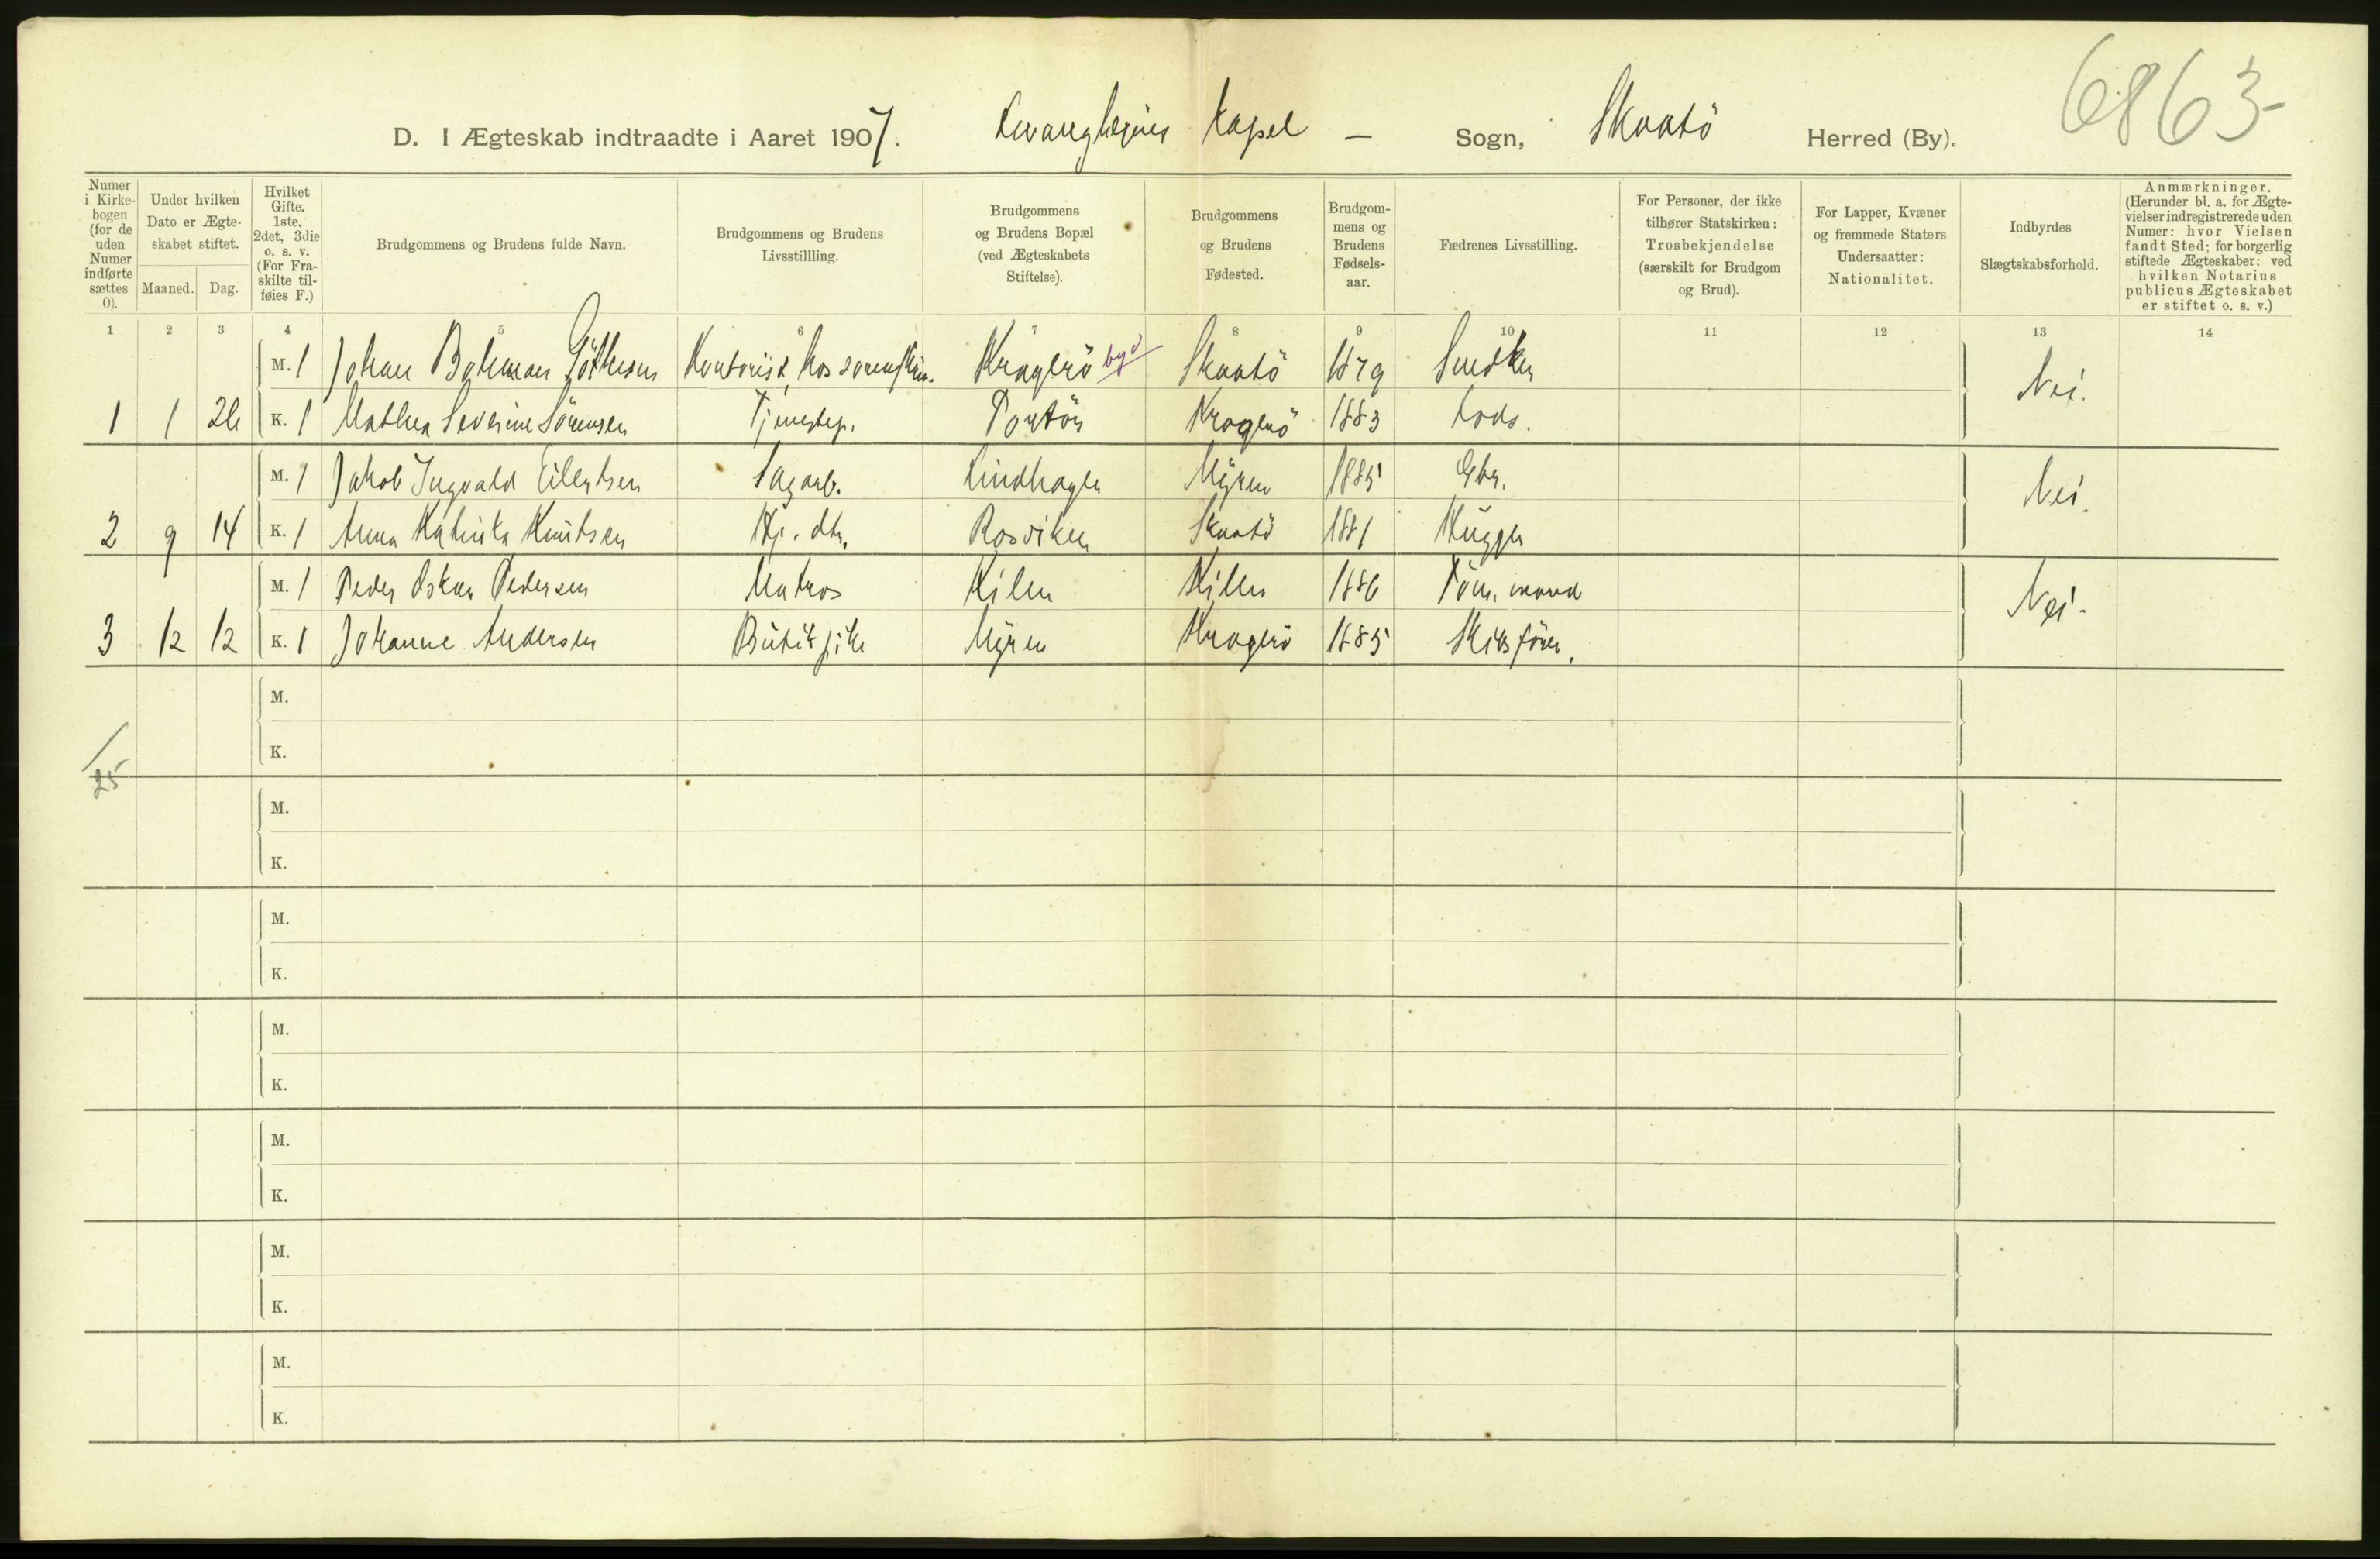 6863
D. I Ægteskab indtraadte i Aaret 1907. Kapel — Sogn, Skaatö Herred (By).
Numer i Kirkebogen (for de uden Numer indførte sættes 0).
Under hvilken Dato er Ægteskabet stiftet.
Maaned. Dag.
Hvilket Gifte. 1ste, 2det, 3die o. s. v. (For Fraskilte tilføies F.)
Brudgommens og Brudens fulde Navn.
Brudgommens og Brudens Livsstillling.
Brudgommens og Brudens Bopæl (ved Ægteskabets Stiftelse).
Brudgommens og Brudens Fødested.
Brudgommens og Brudens Fødselsaar.
Fædrenes Livsstilling.
For Personer, der ikke tilhører Statskirken: Trosbekjendelse (særskilt for Brudgom og Brud).
For Lapper, Kvæner og fremmede Staters Undersaatter: Nationalitet.
Indbyrdes Slægtskabsforhold.
Anmærkninger. (Herunder bl. a. for Ægtevielser indregistrerede uden Numer: hvor Vielsen fandt Sted; for borgerlig stiftede Ægteskaber: ved hvilken Notarius publicus Ægteskabet er stiftet o. s. v.)
1 2 3 4 5 6 7 8 9 10 11 12 13 14
M. 1 Johan Kontorist hos Kragerö by Skaatö 1879 Snedker Nei.
1 1 26 K. 1 Mathea Severine Sörensen Tjenestep. Portör Kragerö 1883 Lods.
M. 1 Jakob Ingvald Eilertsen Sagarb. Lindhagen Myren 1885 Gbr. Nei.
2 9 14 K. 1 Anna Katinka Knutsen Hj. dtr. Rosviken Skaatö 1881 Hugger
M. 1 Peder Oskar Pedersen Matros Kilen Kilen 1886 Töm. mand Nei.
3 12 12 K. 1 Johanne Andersen Butikpike Myren Kragerö 1885 Skibsförer.
M.
K.
25
M.
K.
M.
K.
M.
K.
M.
K.
M.
K.
M.
K.